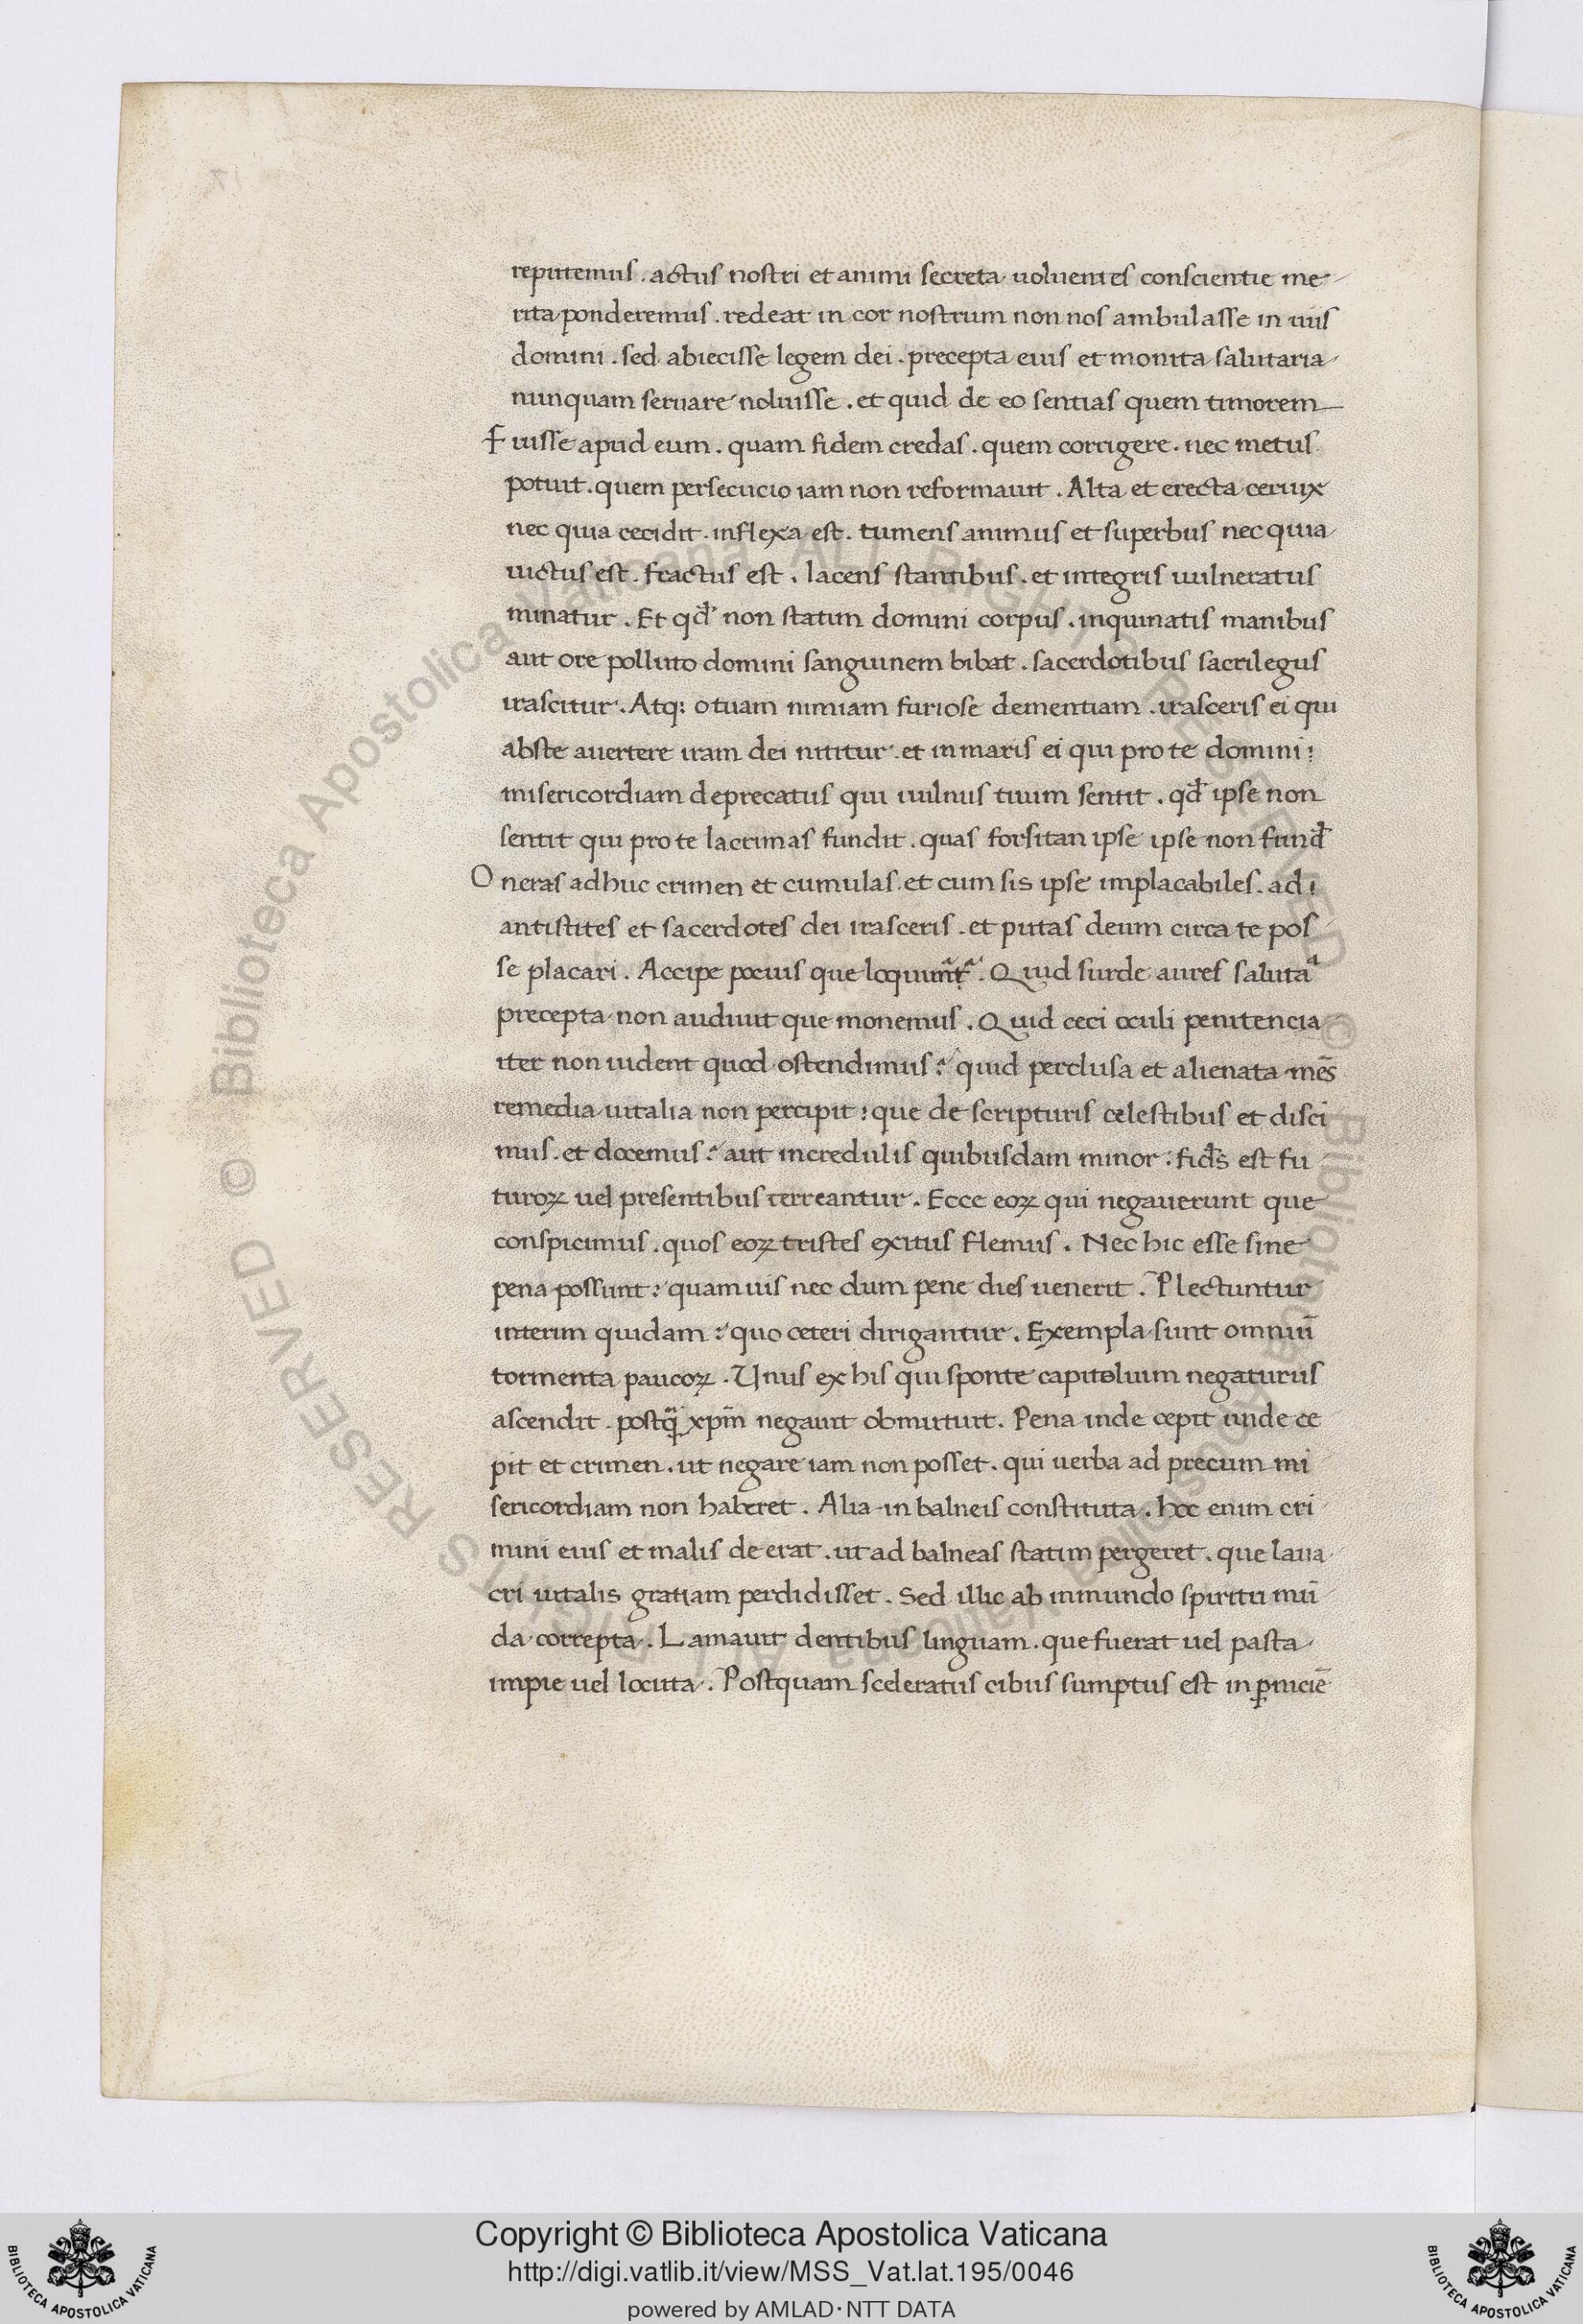 reputemus . actus nostri et animi secreta uoluentes conscientie me
rita ponderemus . redeat in cor nostrum non nos ambulasse in uiis
domini . sed abiecisse legem dei . precepta eius et monita salutaria
nunquam seruare noluisse . et quid de eo sentias quem timorem
Fuisse apud eum . quam fidem credas . quem corrigere . nec metus
potuit . quem persecucio iam non reformauit . Alta et erecta ceruix
nec quia cecidit . inflexa est . tumens animus et superbus nec quia
uictus est . fractus est . Iacens stantibus . et integris uulneratus
minatur . Et qđ non statim domini corpus . inquinatis manibus
aut ore polluto domini sanguinem bibat . sacerdotibus sacrilegus
irascitur . Atq: o tuam nimiam furiose dementiam . irasceris ei qui
abste auertere iram dei nititur . et in maris ei qui pro te domini :
misericordiam deprecatus qui uulnus tuum sentit . qđ ipse non
sentit qui pro te lacrimas fundit . quas forsitan ipse ipse non funđ
Oneras adhuc crimen et cumulas . et cum sis ipse implacabiles . ad :
antistites et sacerdotes dei irasceris . et putas deum circa te pos
se placari . Accipe pocius que loquimr̃ . Quid surde aures salutaa
precepta non audiuit que monemus . Quid ceci oculi penitencia
iter non uident quod ostendimus : quid perclusa et alienata mẽs
remedia uitalia non percipit : que de scripturis celestibus et disci
mus . et docemus : aut incredulis quibusdam minor : fiđs est fu
turoꝝ uel presentibus terreantur . Ecce eoꝝ qui negauerunt que
conspicimus . quos eoꝝ tristes exitus flemus . Nec hic esse sine
pena possunt : quamuis nec dum pene dies uenerit . Plectuntur
interim quidam : quo ceteri dirigantur . Exempla sunt omniũ
tormenta paucoꝝ . Unus ex his qui sponte capitolium negaturus
ascendit . postq̃ xp̃m negauit obmutuit . Pena inde cepit unde ce
pit et crimen . ut negare iam non posset . qui uerba ad precum mi
sericordiam non haberet . Alia in balneis constituta . hoc enim cri
mini eius et malis de erat . ut ad balneas statim pergeret . que laua
cri uitalis gratiam perdidisset . Sed illic ab inmundo spiritu mũ
da correpta . Lamauit dentibus linguam . que fuerat uel pasta
impie uel locuta . Postquam sceleratus cibus sumptus est in ꝑniciẽ
© Biblioteca Apostolica Vaticana ALL RIGHTS RESERVED
© Biblioteca Apostolica Vaticana ALL RIGHTS RESERVED
Copyright © Biblioteca Apostolica Vaticana
http://digi.vatlib.it/view/MSS_Vat.lat.195/0046
powered by AMLAD·NTT DATA
BIBLIOTECA APOSTOLICA VATICANA
BIBLIOTECA APOSTOLICA VATICANA